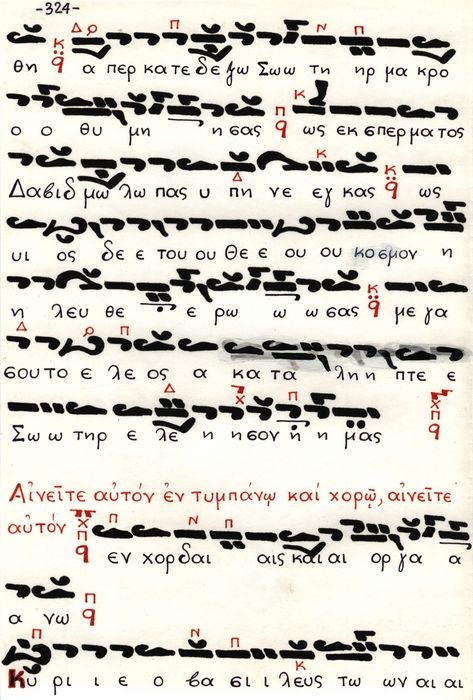 -324-
θη α περ κα τε δε ξω Σω ω τη ηρ μα κρο
ο ο θυ μη η σας ως εκ σπερματος
Δαβιδ μω λω πας υ πη νε εγ κας ως
υι ος δε ε του ου Θε ε ου ου κοσμον η
η λευ θε ε ρω ω ω σας με γα
σου το ε λε ος α κα τα λη η πτε ε
Σω ω τηρ ε λε η η σον ή η μας
Αἰνεῖτε αὐτόν ἐν τυμπάνῳ καί χορῷ, αἰνεῖτε
αὐτόν
εν χορδαι αις και αι οργα α
α νω
Κυ ρι ι ε ο βα σι ι λευς τω ων αι αι